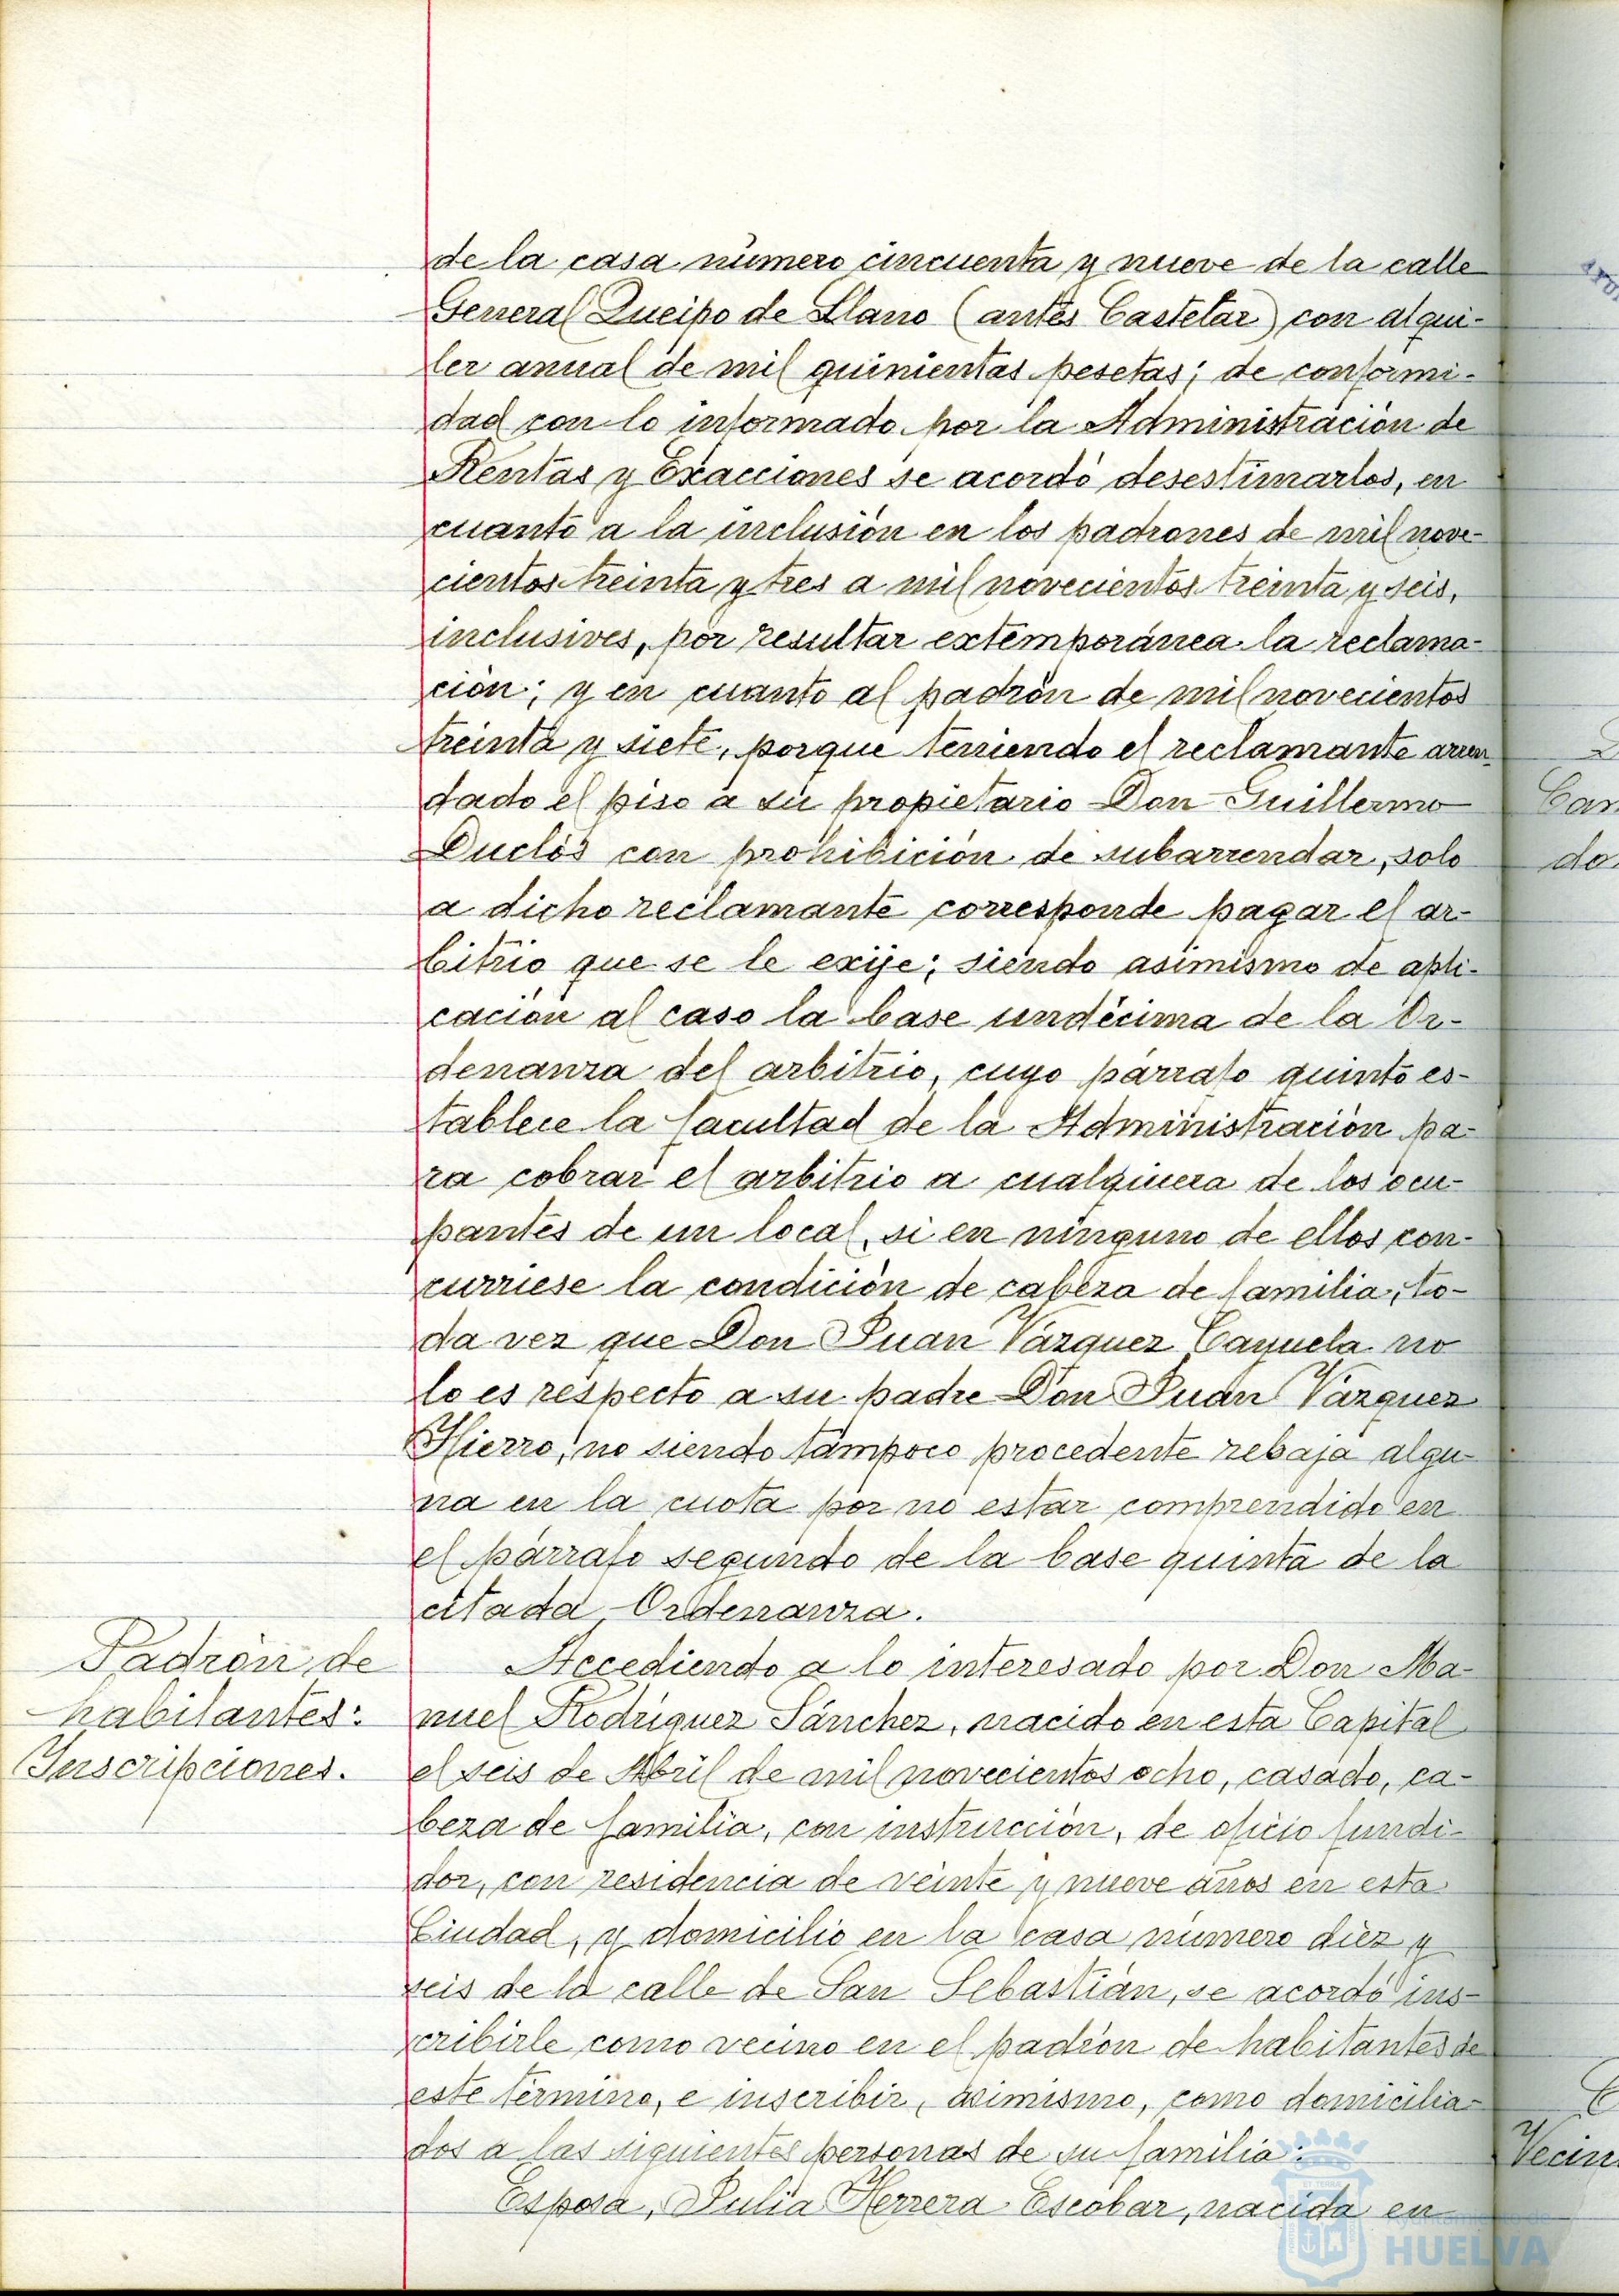 de la casa número cincuenta y nueve de la calle
General Queipo de Llano (antes Castelar) con alqui-
ler anual de mil quinientas pesetas; de conformi-
dad con lo informado por la Administración de
Rentas y Exacciones se acordó desestimarlos, en
cuanto a la inclusión en los padrones de mil nove-
cientos treinta y tres a mil novecientos treinta y seis,
inclusives, por resultar extemporánea la reclama-
ción; y en cuanto al padrón de mil novecientos
treinta y siete, porque teniendo el reclamante arren-
dado el piso a su propietario Don Guillermo
Duclós con prohibición de subarrendar, solo
a dicho reclamante corresponde pagar el ar-
bitrio que se le exije; siendo asimismo de apli-
cación al caso la base undécima de la Or-
denanza del arbitrio, cuyo párrafo quinto es-
tablece la facultad de la Administración pa-
ra cobrar el arbitrio a cualquiera de los ocu-
pantes de un local, si en ninguno de ellos con-
curriese la condición de cabeza de familia, to-
da vez que Don Juan Vázquez Cayuela no
lo es respecto a su padre Don Juan Vázquez
Hierro, no siendo tampoco procedente rebaja algu-
na en la cuota por no estar comprendido en
el párrafo segundo de la base quinta de la
citada Ordenanza.
Padrón de
habitantes:
Inscripciones.
Accediendo a lo interesado por Don Ma-
nuel Rodríguez Sánchez, nacido en esta Capital
el seis de Abril de mil novecientos ocho, casado, ca-
beza de familia, con instrucción, de oficio fundi-
dor, con residencia de veinte y nueve años en esta
Ciudad, y domicilio en la casa número diez y
seis de la calle de San Sebastián, se acordó ins-
cribirle como vecino en el padrón de habitantes de
este término, e inscribir, asimismo, como domicilia-
dos a las siguientes personas de su familia:
Esposa, Julia Herrera Escobar, nacida en
Can
do
Vecin
HUELVA